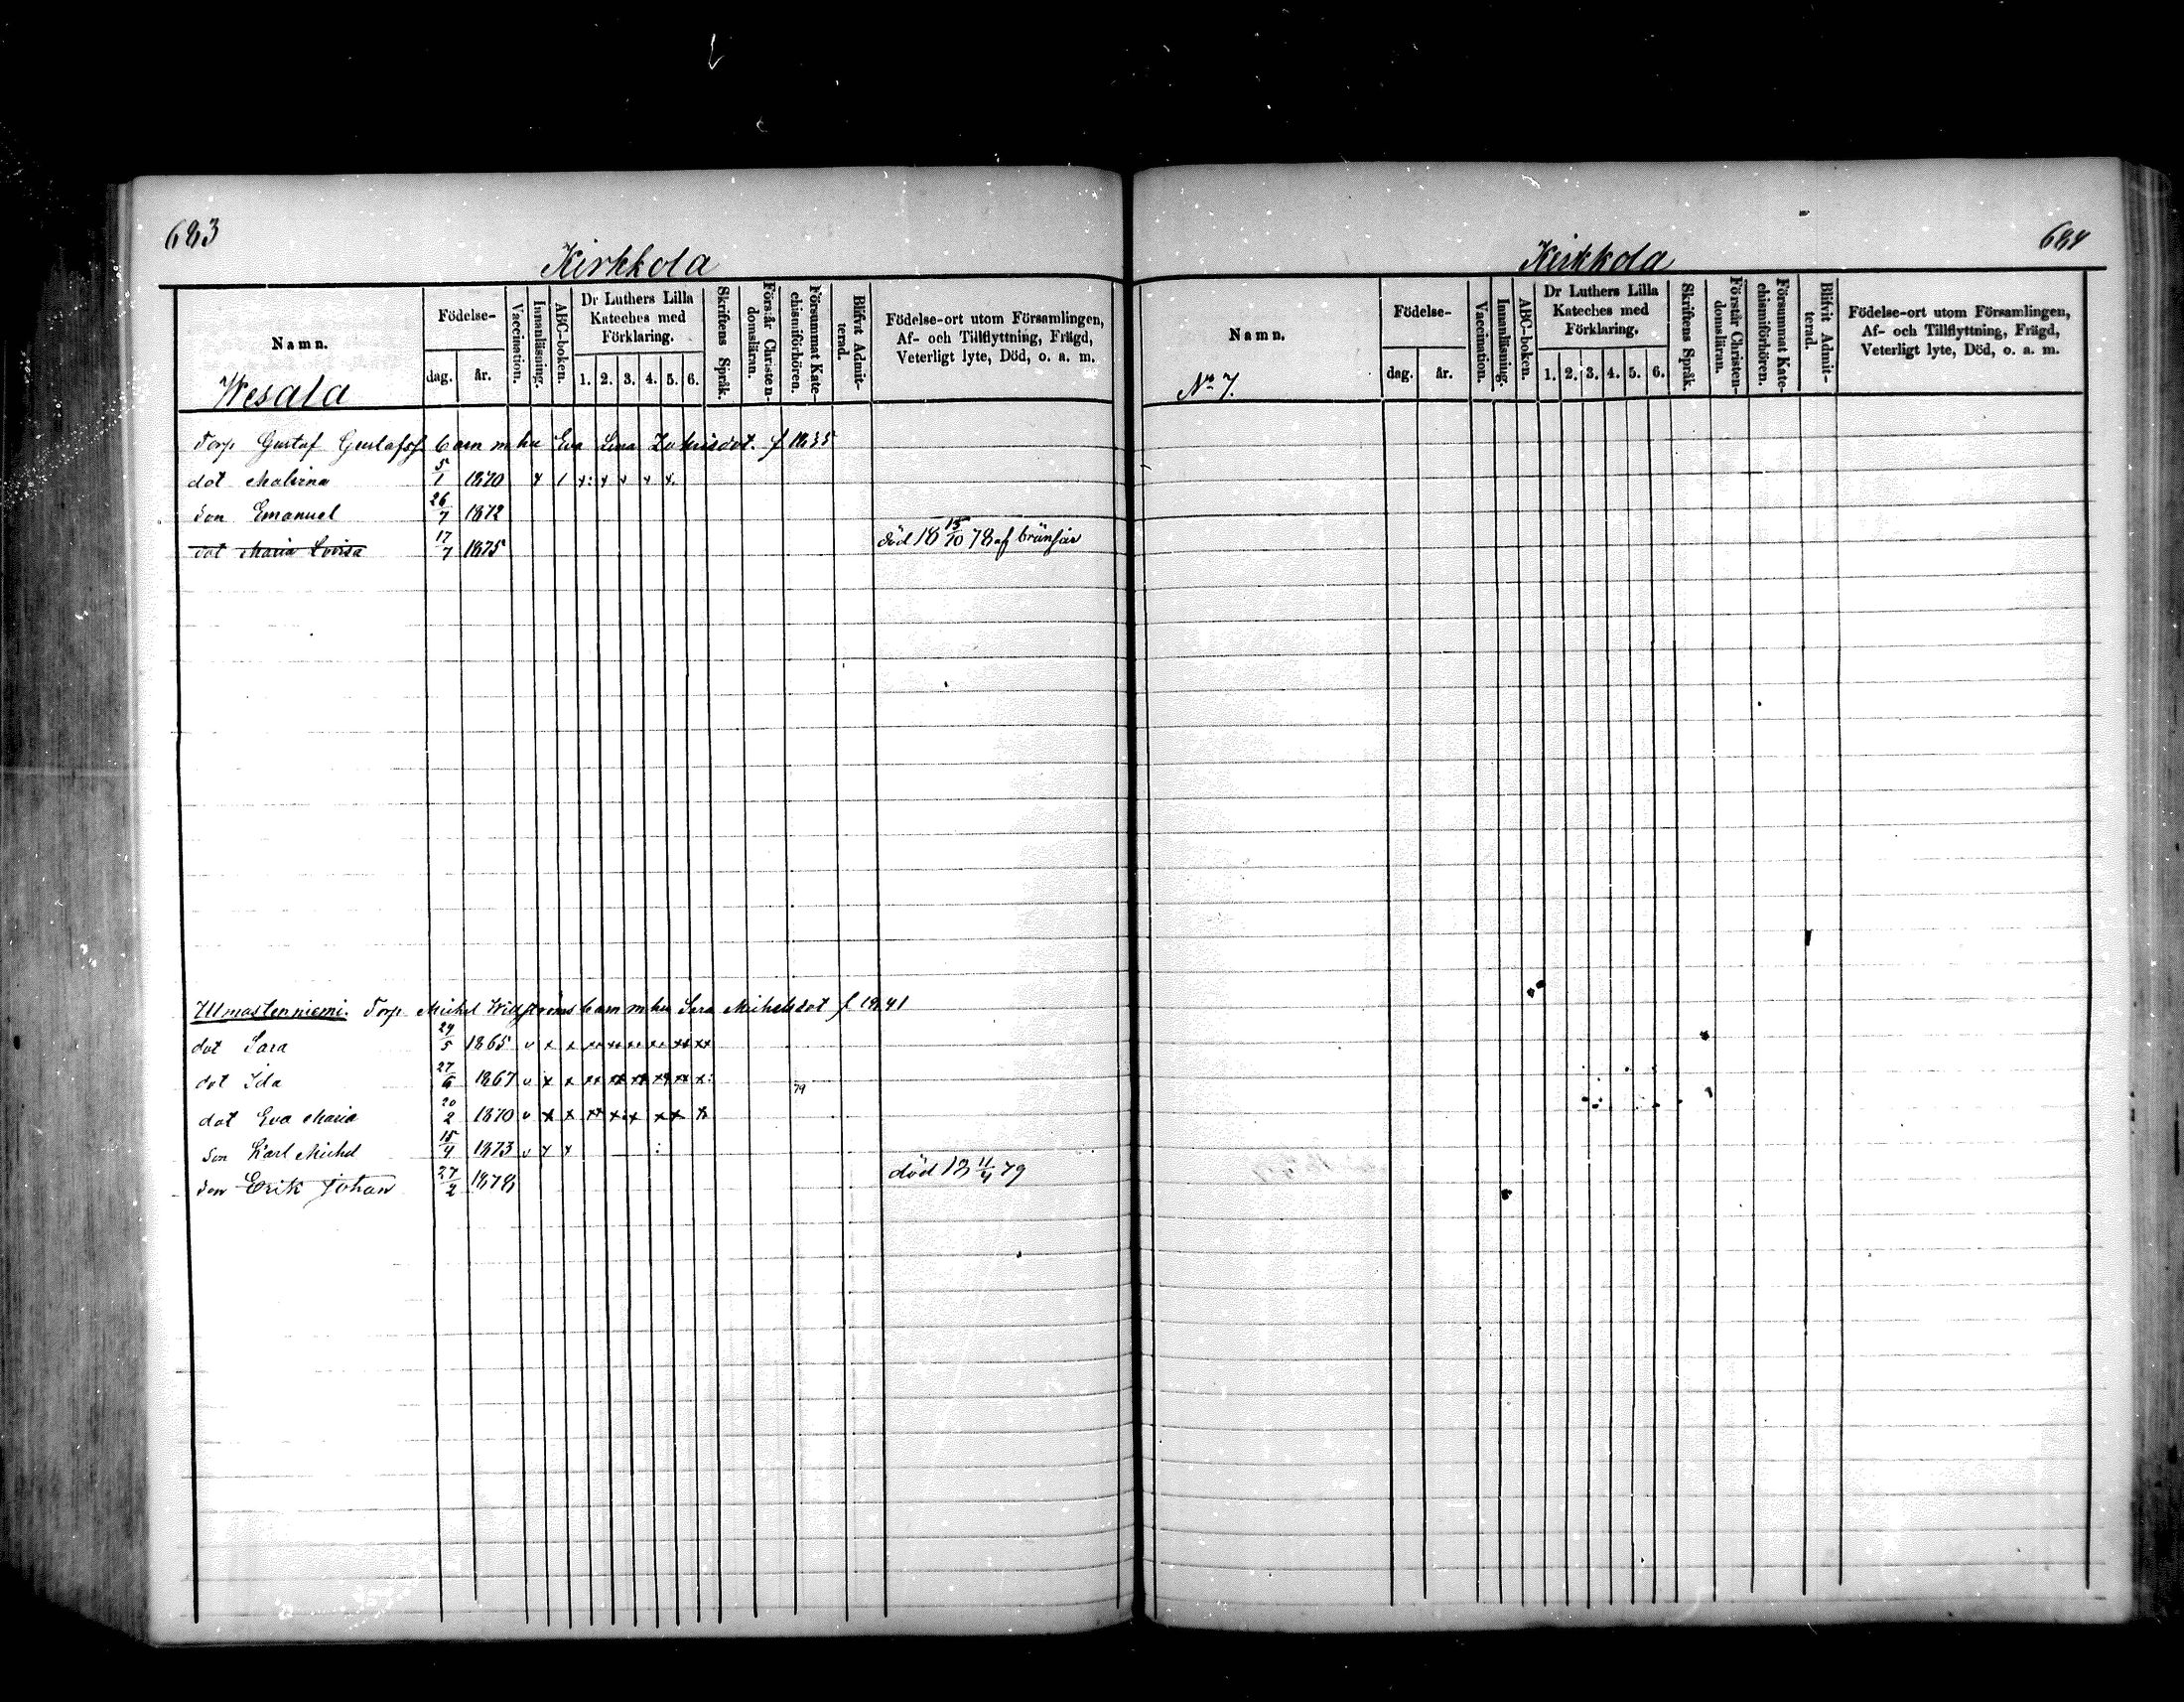 683
Kirkkola
Namn.
Födelse-
dag.
år.
Vaccination.
Innanläsning.
ABC-boken.
Dr Luthers Lilla
Kateches med
Förklaring.
1. 2. 3. 4. 5. 6.
Skriftens Språk.
Förstår Christen-
domsläran.
Försummat Kate-
chismiförhören.
Blifvit Admit-
terad.
Födelse-ort utom Församlingen,
Af- och Tillflyttning, Frägd,
Veterligt lyte, Död, o. a. m.
Wesala
Torp Gustaf Gustafss. barn m hu Eva Lena f 1835
dot Malvina 5/1 1870 x / x: x x x x.
Son Emanuel 26/7 1872
dot Maria Lovisa 17/7 1875 död 18 15/10 78 af
Ulmastenniemi. Torp Michel barn m hu Sara Michelsdot f 1841
dot Sara 24/5 1865 v x x xx xx xx xx xx xx
dot Ida 27/6 1867 v x x xx xx xx xx xx x: 79
dot Eva Maria 20/2 1870 v x x xx x: x x x x
Son Karl Michel 15/4 1873 v x x :
Son Erik Johan 27/2 1878 död 18 11/4 79
684
Kirkkola
Namn.
Födelse-
dag.
år.
Vaccination.
Innanläsning.
ABC-boken.
Dr Luthers Lilla
Kateches med
Förklaring.
1. 2. 3. 4. 5. 6.
Skriftens Språk.
Förstår Christen-
domsläran.
Försummat Kate-
chismiförhören.
Blifvit Admit-
terad.
Födelse-ort utom Församlingen,
Af- och Tillflyttning, Frägd,
Veterligt lyte, Död, o. a. m.
No 7.